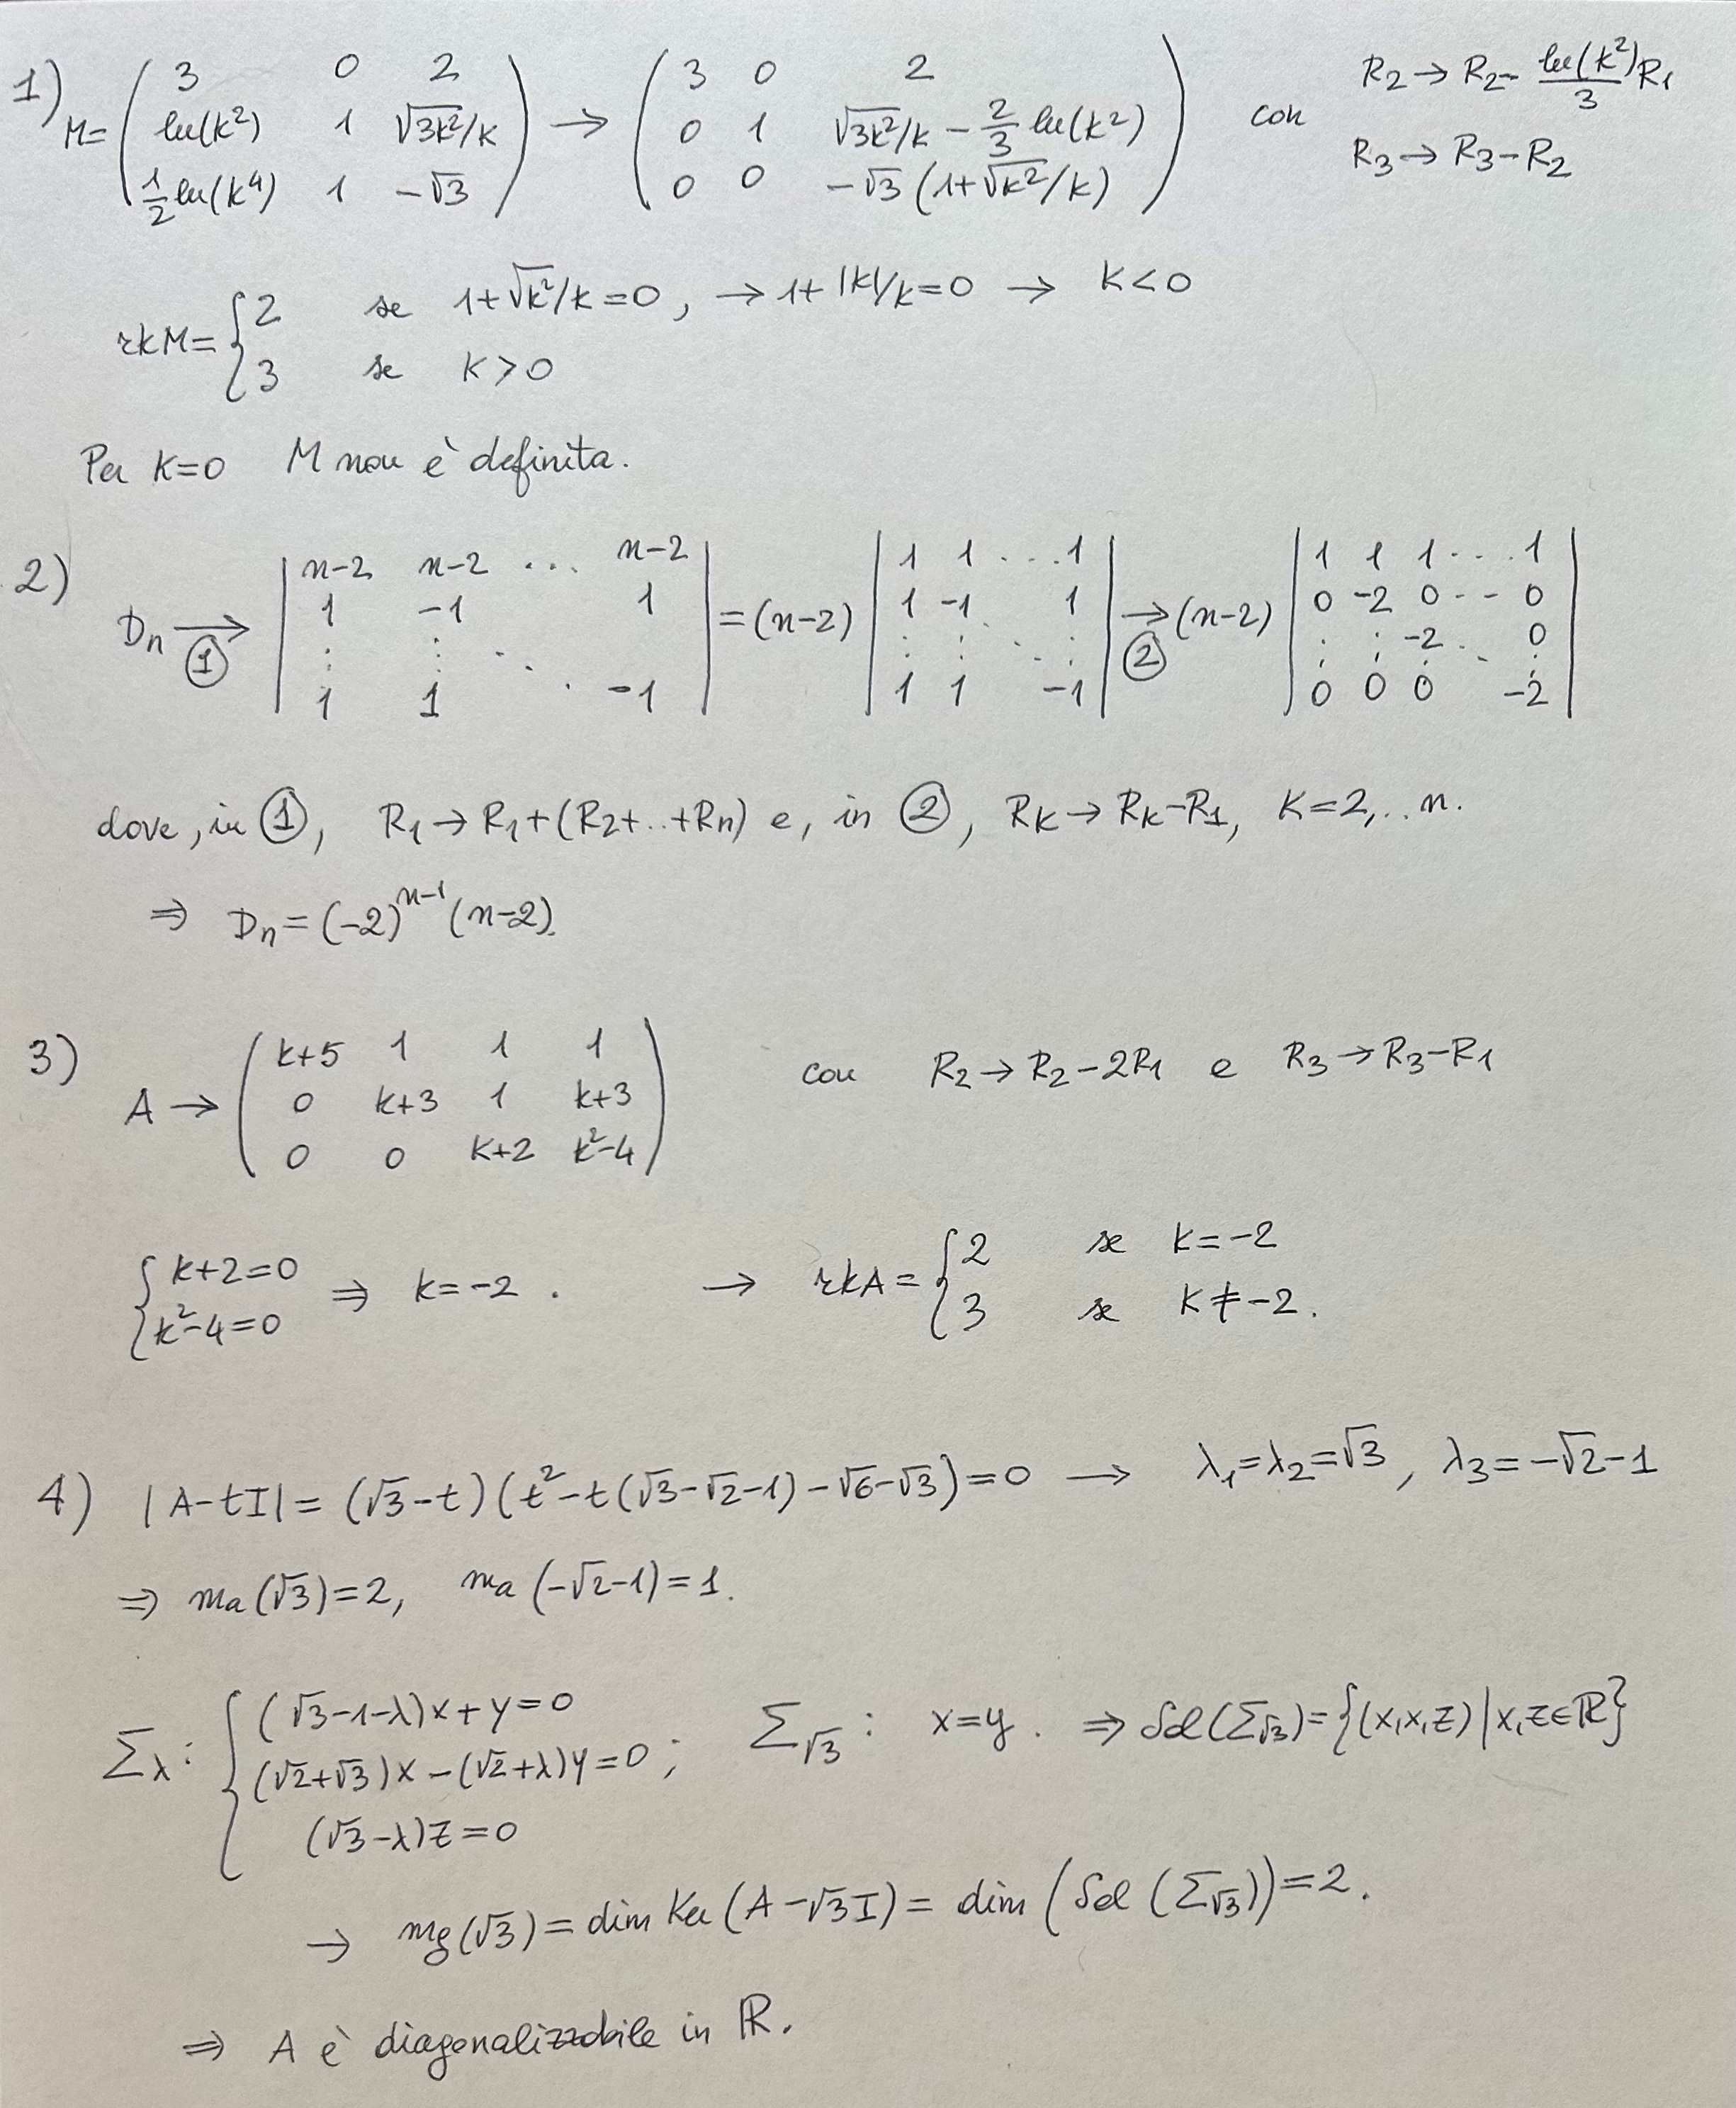 1) M = ( 3 0 2 ; ln(k²) 1 √3k²/k ; 1/2 ln(k⁴) 1 -√3 ) → ( 3 0 2 ; 0 1 √3k²/k - 2/3 ln(k²) ; 0 0 -√3 (1+√k²/k) ) con R₂ → R₂ - ln(k²)/3 R₁
R₃ → R₃ - R₂
rkM = { 2 se 1+√k²/k = 0, → 1+|k|/k = 0 → k < 0
3 se k > 0
Per k=0 M non è definita.
2) Dn →① | n-2 n-2 ... n-2 ; 1 -1 1 ; ⋮ ⋮ ⋱ ; 1 1 -1 | = (n-2) | 1 1 ... 1 ; 1 -1 1 ; ⋮ ⋮ ⋱ ⋮ ; 1 1 -1 | →② (n-2) | 1 1 1 ... 1 ; 0 -2 0 -- 0 ; ⋮ ⋮ -2 ⋱ 0 ; 0 0 0 -2 |
dove, in ①, R₁ → R₁+(R₂+..+Rn) e, in ②, Rk → Rk-R₁, k=2,..n.
⇒ Dn = (-2)ⁿ⁻¹ (n-2).
3) A → ( k+5 1 1 1 ; 0 k+3 1 k+3 ; 0 0 k+2 k²-4 ) con R₂ → R₂-2R₁ e R₃ → R₃-R₁
{ k+2=0 ; k²-4=0 ⇒ k=-2 . → rkA = { 2 se k=-2
3 se k≠-2.
4) |A-tI| = (√3-t)(t²-t(√3-√2-1)-√6-√3) = 0 → λ₁=λ₂=√3, λ₃=-√2-1
⇒ ma(√3)=2, ma(-√2-1)=1.
Σλ: { (√3-1-λ)x+y=0 ; (√2+√3)x-(√2+λ)y=0 ; (√3-λ)z=0 ; Σ√3: x=y. ⇒ Sol(Σ√3)={(x,x,z)|x,z∈ℝ}
→ mg(√3) = dim Ker(A-√3I) = dim(Sol(Σ√3)) = 2.
⇒ A è diagonalizzabile in ℝ.